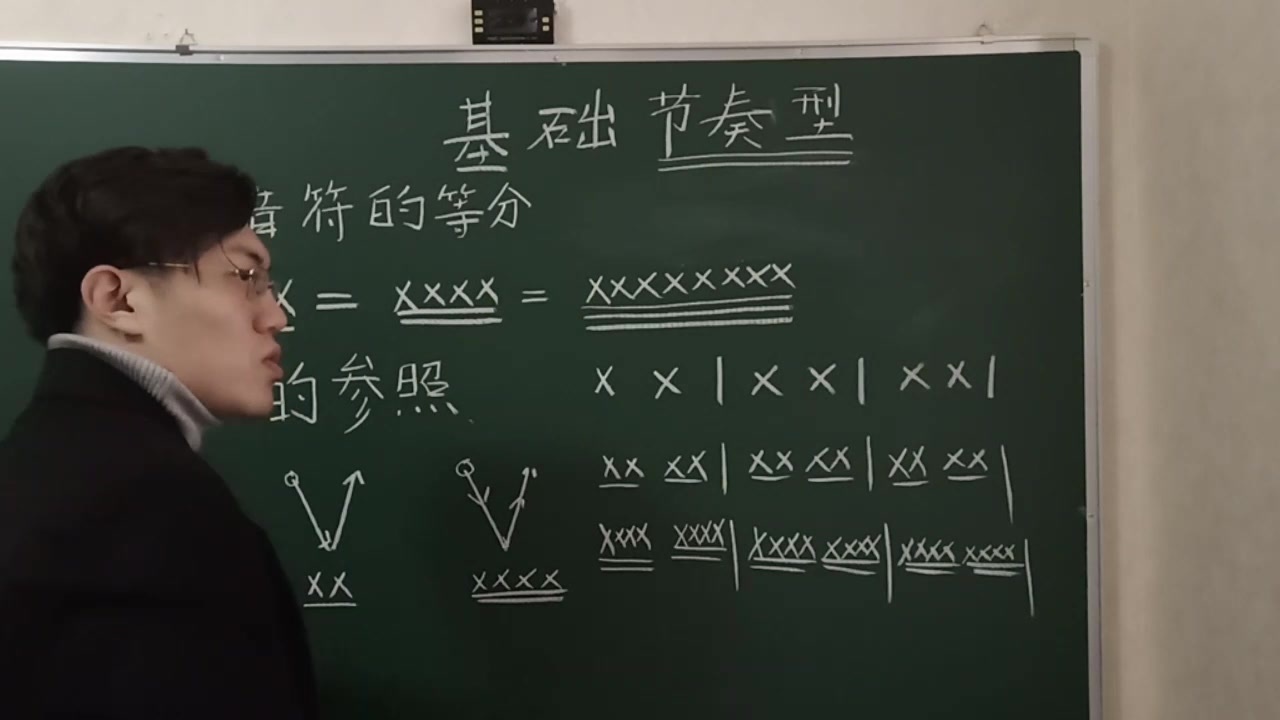 基础节奏型
音符的等分
X = XXXX = XXXXXXXX
的参照
X X | X X | X X |
XX XX | XX XX | XX XX |
XXXX XXXX | XXXX XXXX | XXXX XXXX |
XX XXXX